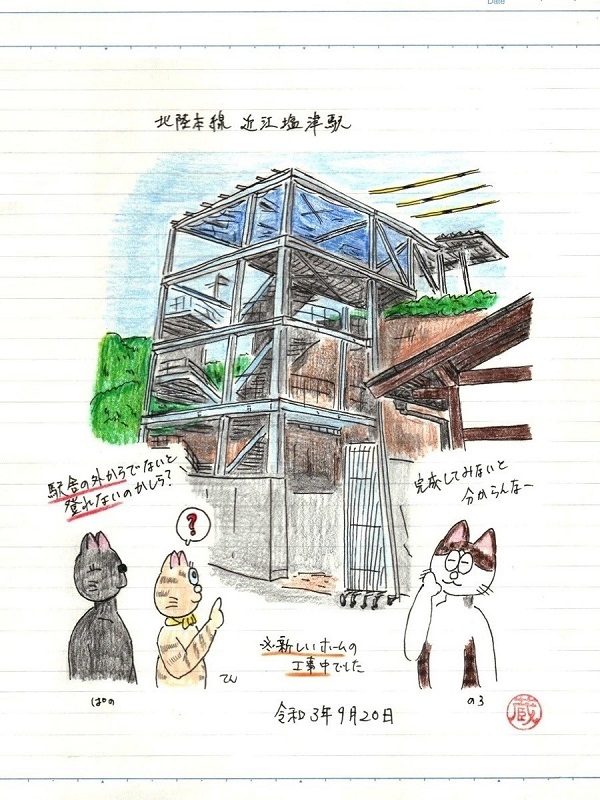 Date
北陸本線 近江塩津駅
駅舎の外からでないと
登れないのかしら?
完成してみないと
分からんなー
?
※新しいホームの
工事中でした
ぱの
てん
のろ
令和3年9月20日
蔵